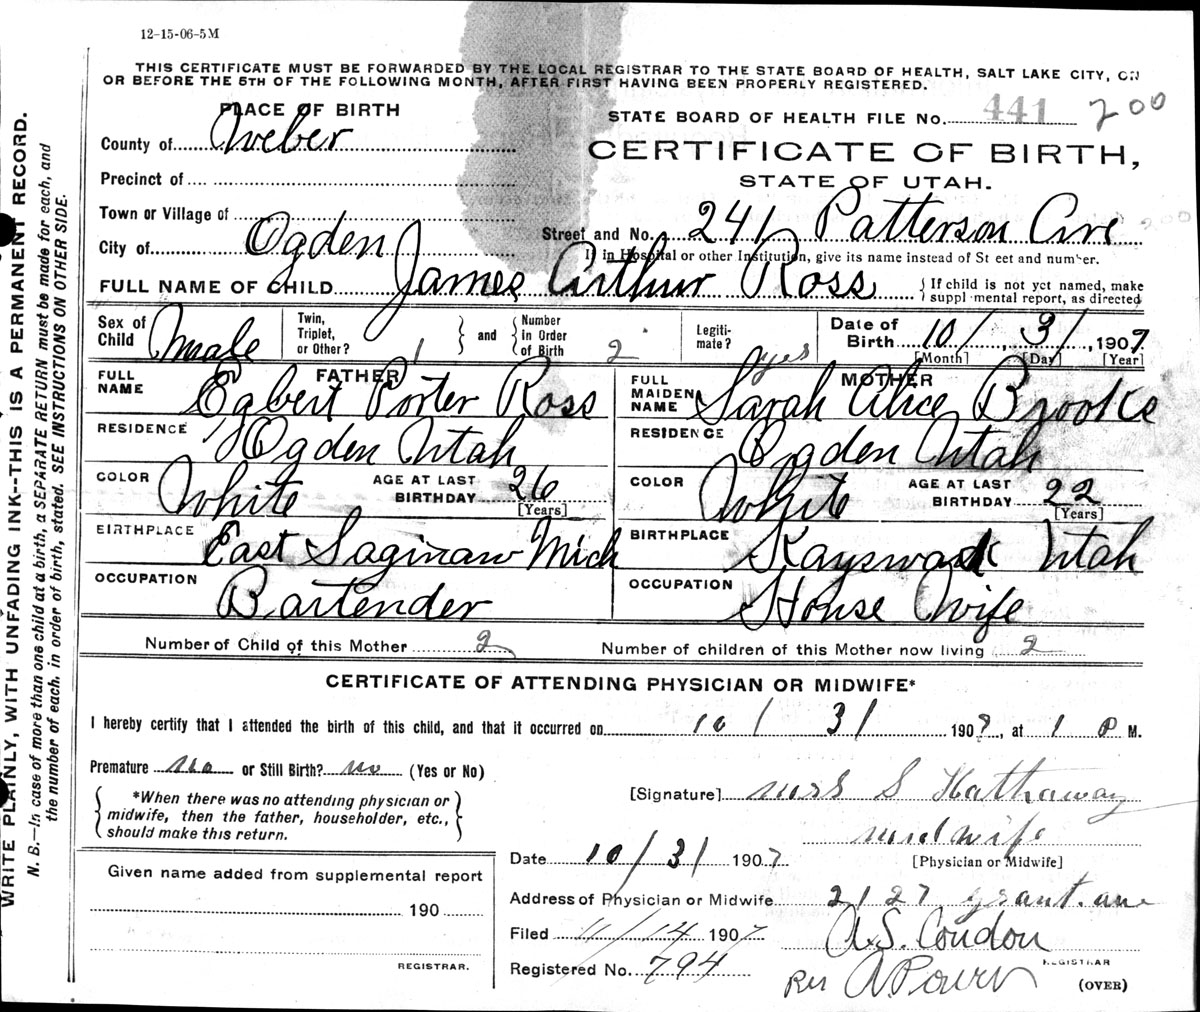 12-15-06-5M
THIS CERTIFICATE MUST BE FORWARDED BY THE LOCAL REGISTRAR TO THE STATE BOARD OF HEALTH, SALT LAKE CITY, ON
OR BEFORE THE 5TH OF THE FOLLOWING MONTH, AFTER FIRST HAVING BEEN PROPERLY REGISTERED.
PLACE OF BIRTH
STATE BOARD OF HEALTH FILE No. 441 200
County of Weber
CERTIFICATE OF BIRTH,
STATE OF UTAH.
Precinct of
Town or Village of
Street and No. 241 Patterson Ave
City of Ogden
If in Hospital or other Institution, give its name instead of St eet and number.
FULL NAME OF CHILD James Arthur Ross
{If child is not yet named, make
suppl mental report, as directed
Sex of Child Male
Twin, Triplet, or Other? 1 } and { Number in Order of Birth 2
Legiti-mate? yes
Date of Birth 10/, 31, 1907
[Month] [Day] [Year]
FATHER
FULL NAME Egbert Porter Ross
RESIDENCE Ogden Utah
COLOR White AGE AT LAST BIRTHDAY 26 [Years]
BIRTHPLACE East Saginaw Mich
OCCUPATION Bartender
MOTHER
FULL MAIDEN NAME Sarah Alice Brooks
RESIDENCE Ogden Utah
COLOR White AGE AT LAST BIRTHDAY 22 [Years]
BIRTHPLACE Utah
OCCUPATION House Wife
Number of Child of this Mother 2 Number of children of this Mother now living 2
CERTIFICATE OF ATTENDING PHYSICIAN OR MIDWIFE*
I hereby certify that I attended the birth of this child, and that it occurred on 10/31 1907, at 1 P M.
Premature no or Still Birth? no (Yes or No)
{*When there was no attending physician or
midwife, then the father, householder, etc.,
should make this return.}
[Signature] Mrs S Hathaway
midwife
[Physician or Midwife]
Date 10/31 1907
Address of Physician or Midwife 2127 grant. ave
Filed 11/14 1907
A.S. Condon
REGISTRAR
Registered No. 794
(OVER)
Given name added from supplemental report
190
REGISTRAR.
WRITE PLAINLY, WITH UNFADING INK--THIS IS A PERMANENT RECORD.
N. B.—In case of more than one child at a birth, a SEPARATE RETURN must be made for each, and
the number of each, in order of birth, stated. SEE INSTRUCTIONS ON OTHER SIDE.